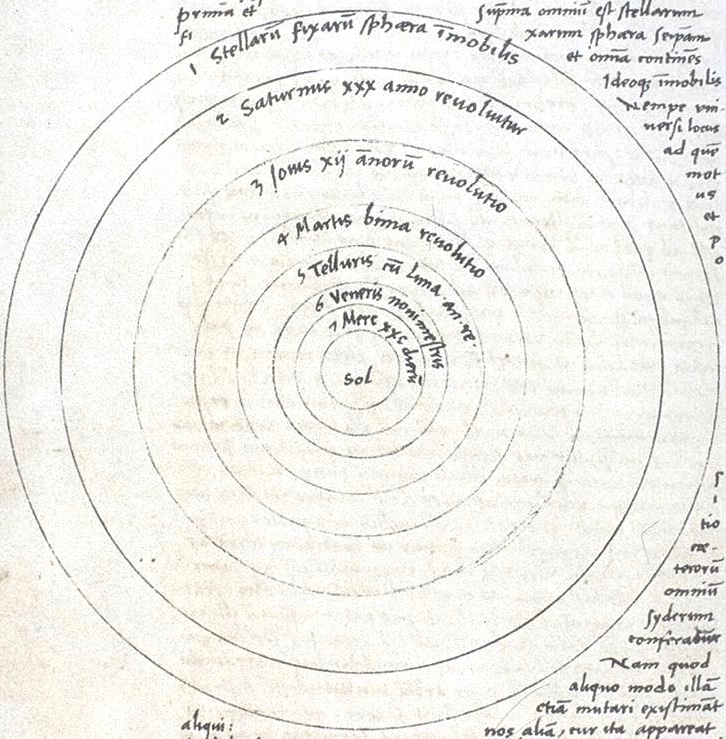 prima et
fi
Supma omniū est stellarum
xarum sphæra seipam
et omīa continēs
Ideoqȝ īmobilis
Nempe vni
uersi locus
ad quē
mot
us
et
p
o
1 Stellarū fixarū sphæra īmobilis
2 Saturnus xxx anno reuoluitur
3 Jouis xij ānorū reuolutio
4 Martis bima reuolutio
5 Telluris cū Luna . an . re
6 Veneris nonimestris
7 Merc xxc dierū
Sol
s
i
tio
cæ-
terorū
omniū
syderum
conferatur
Nam quod
aliquo modo illā
etiā mutari existimāt
aliqui:
nos aliā, cur ita appareat